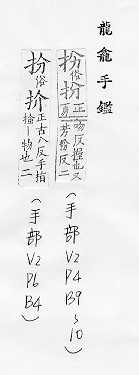 龍龕手鑑
扮俗扮正吻反握也又
夏芳發反二
(手部V2P4B9~10)
扴俗扴正古八反手指
搚-物也二
(手部V2P6B4)